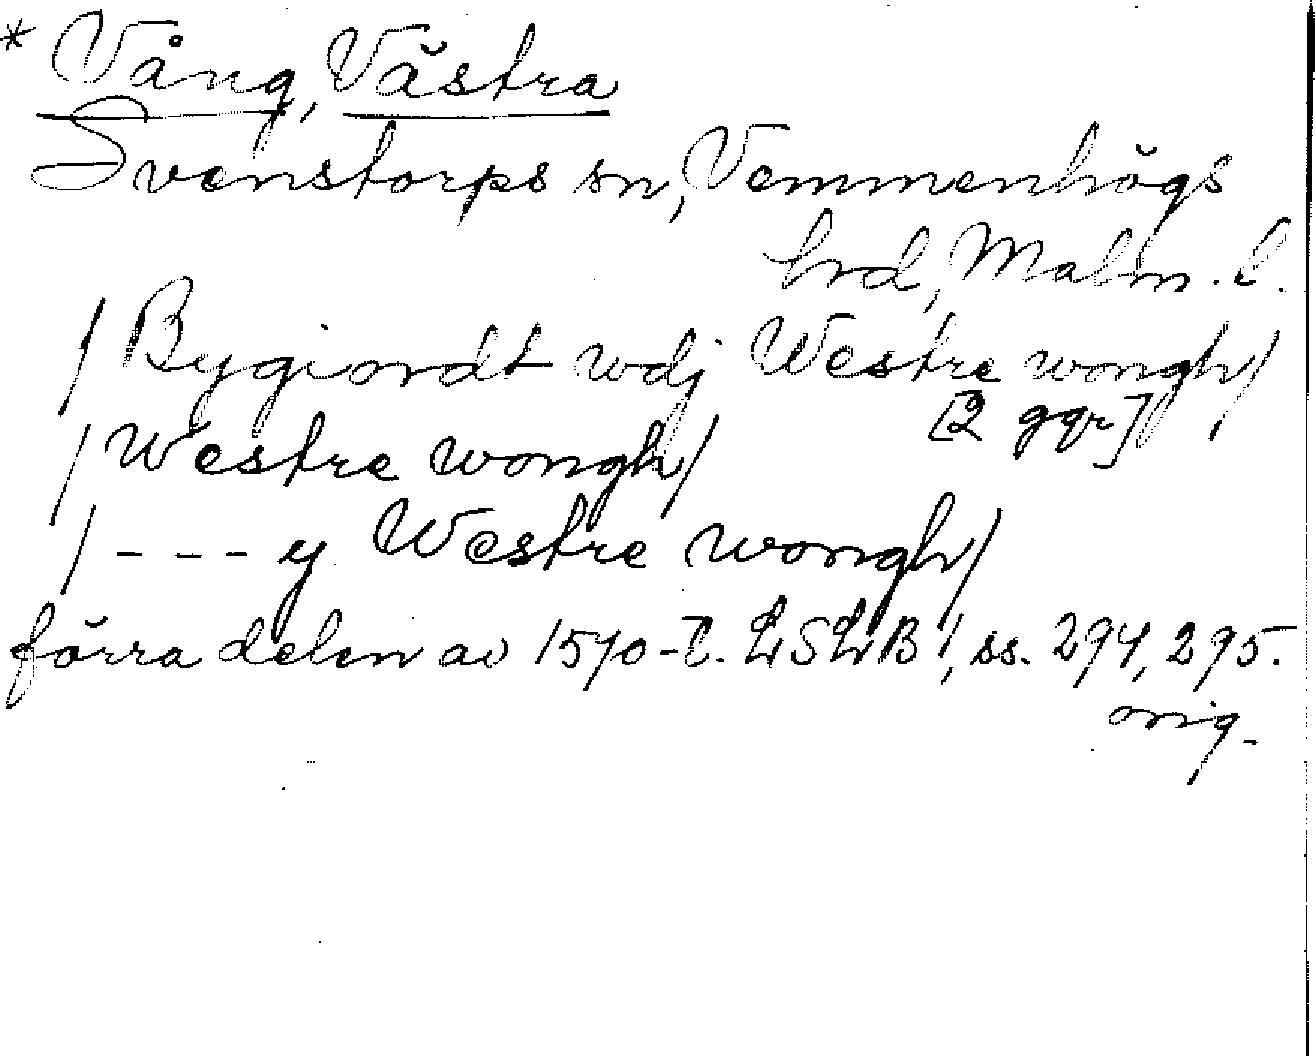 * Vång, Västra
Svenstorps sn, Vemmenhögs
hrd, Malm. l.
/ Bygiordt wdj Westre wongh /
[2 ggr]
/ Westre wongh /
/ - - - y Westre wongh /
förra delen av 1570-t. LSLB 1, ss. 294, 295.
orig.